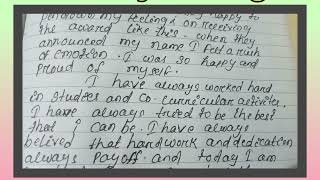 my feelings happy to
on receiving
the award like this. when they
announced my name I felt a rush
of emotion. I was so happy and
proud of myself.
I have always worked hard
in studies and co-curricular activities.
I have always tried to be the best
that I can be. I have always
belived that hardwork and dedication
always payoff. and today I am